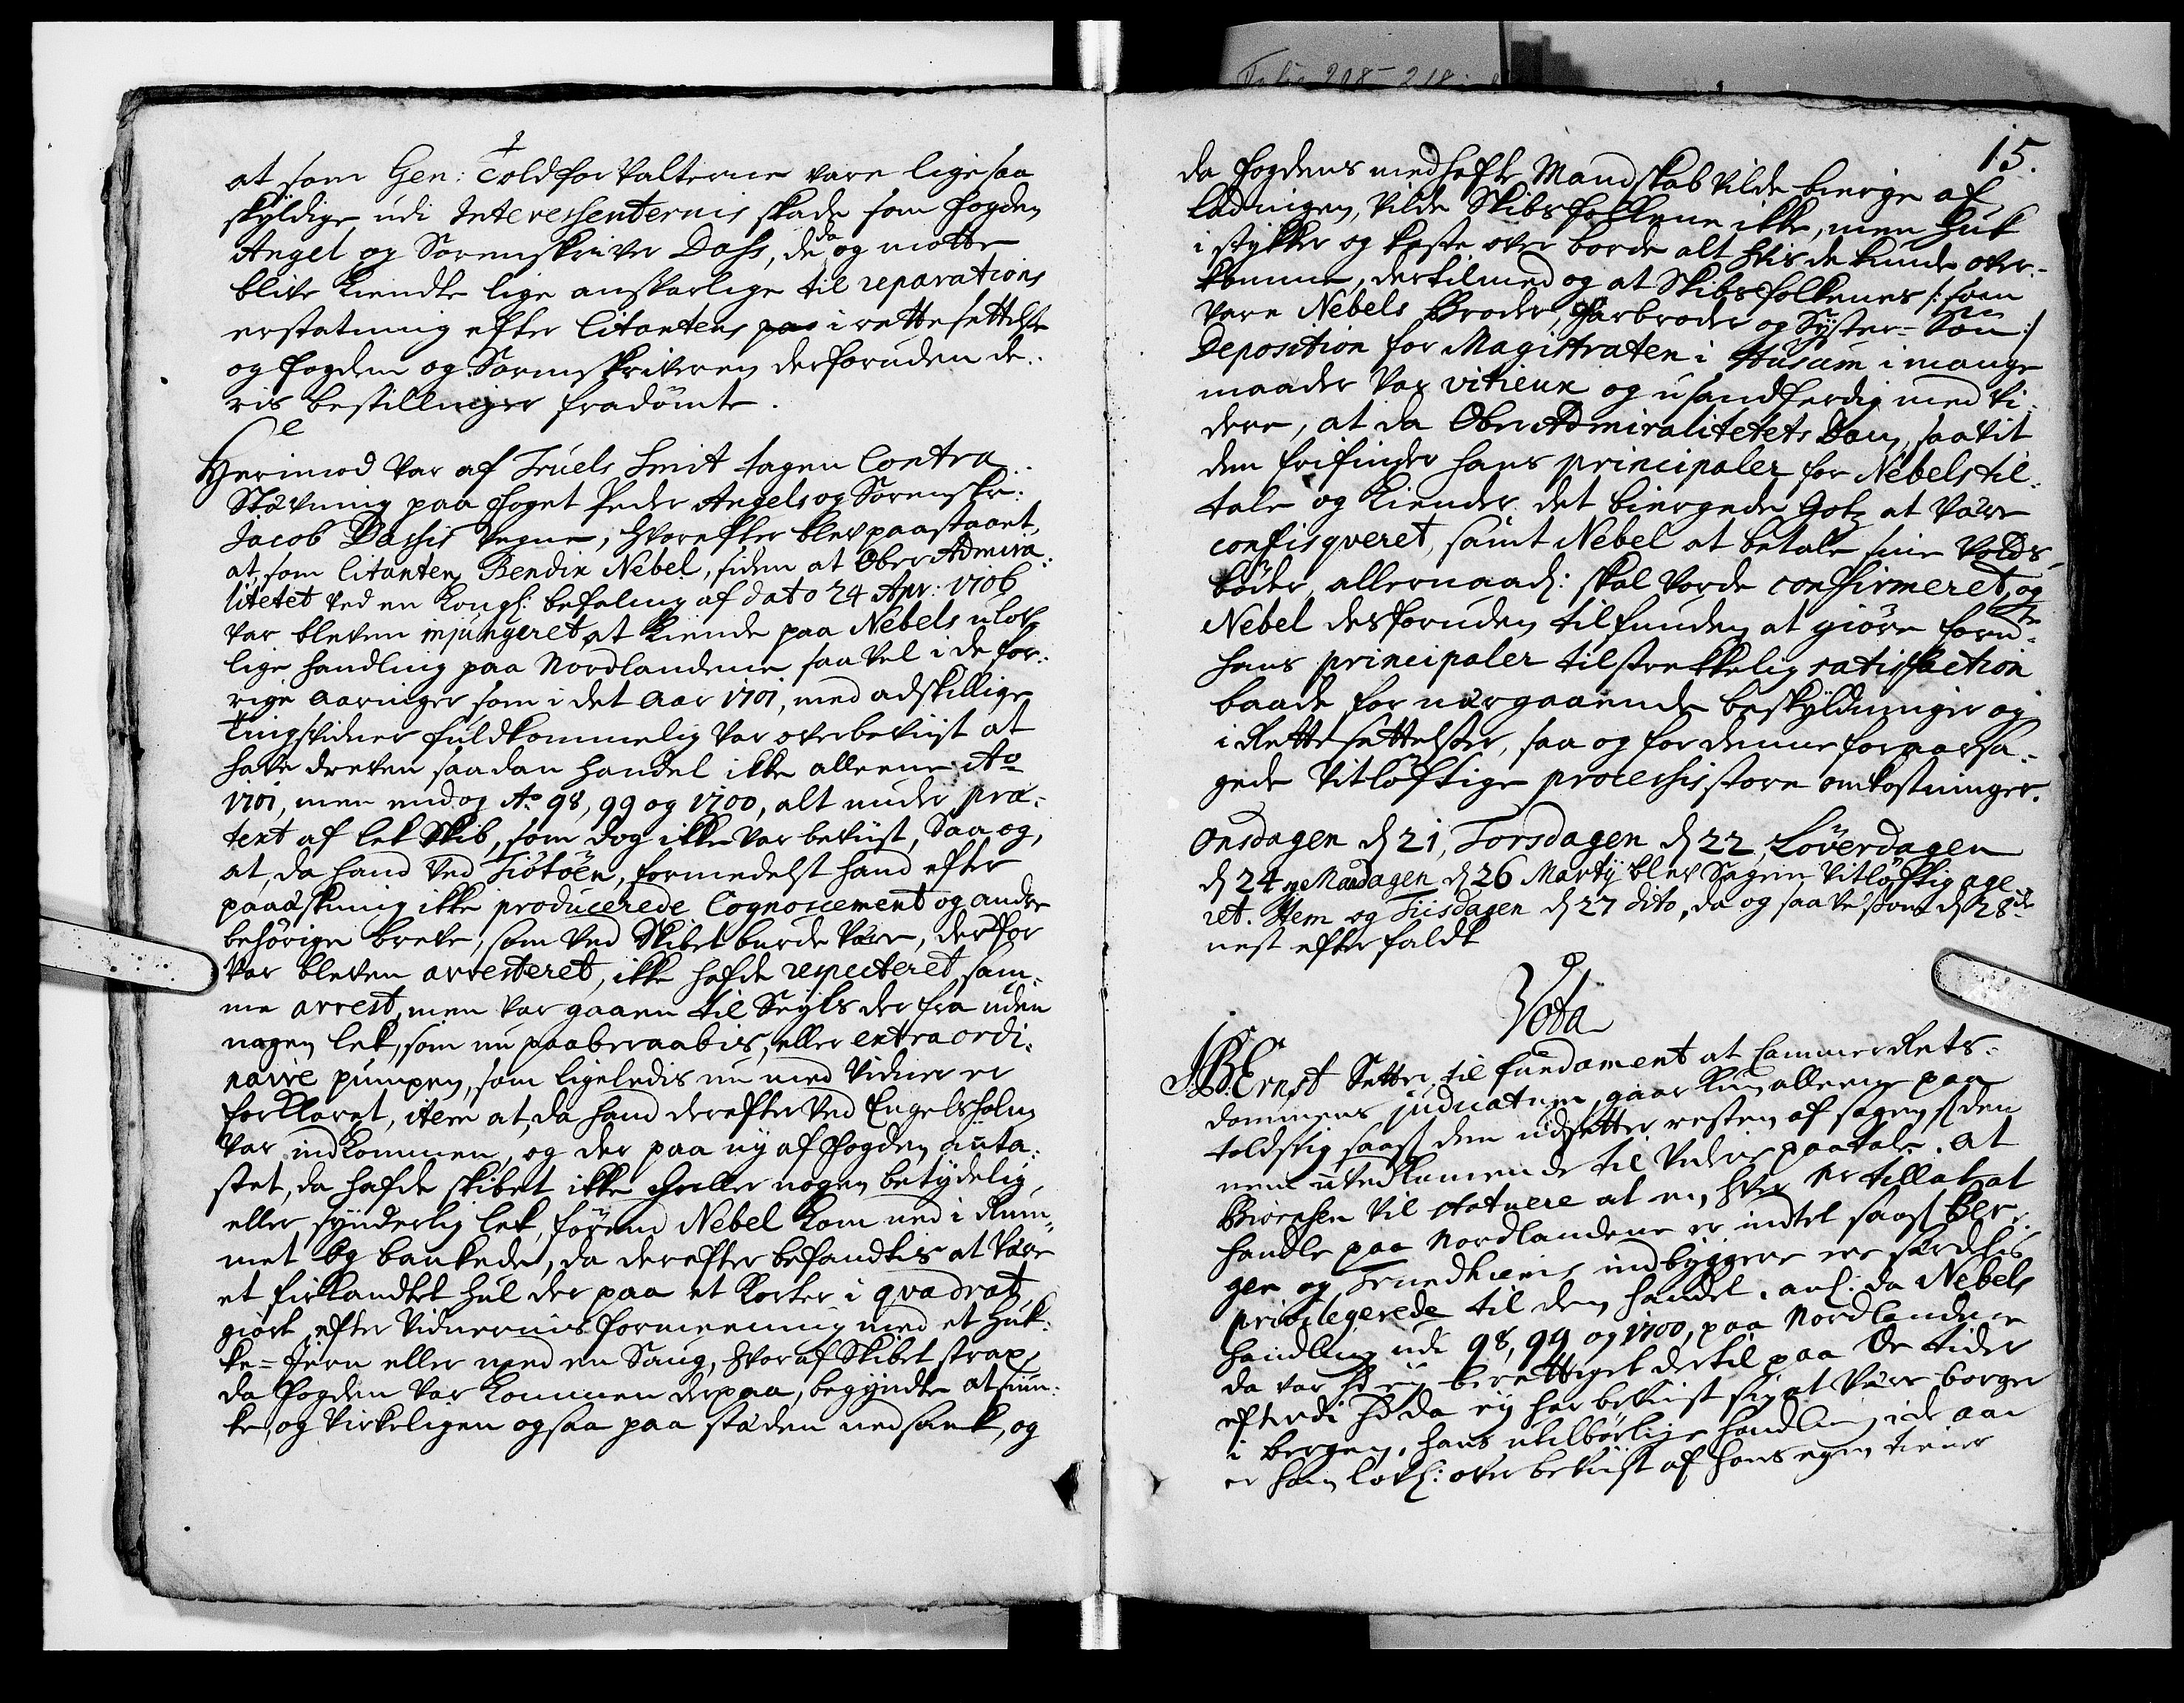 at som Gen: Toldforvalterne vare lige saa
skyldige udi Interessenternis skade som fogden
Angel og Sorenskriver Dass, de da og motte
blive kiendte lige ansvarlige til reparations
erstatning efter Citantens irettesettelse
og fogden og Sorenskriveren derforuden de-
ris bestillinger fradömte.
Herimod var af Truels Smit tagen Contra
Stævning paa foget Peder Angels og Sorenskr:
Jacob Dassis vegne, hvorefter blev paastaaet,
at, som Citanten Bendix Nebel, siden at Ober Admira-
litetet ved en Kongl: befaling af dato 24 Apr: 1706
var bleven injungeret, at kiende paa Nebels ulov-
lige handling paa Nordlandene saa vel i de for-
rige aaringer som i det aar 1701, med adskillige
Tingsvidner fuldkommelig var overbeviist at
have dreven saadan handel ikke alleene Ao
1701, men endog Ao 98, 99 og 1700, alt under præ-
text af lek Skib, som dog ikke var beviist, Saa og,
at, da hand ved Tiötöen, formedelst hand efter
paaæskning ikke producerede Cognoscement og andre
behörige breve, som ved Skibet burde være, derfor
var bleven arresteret, ikke hafde respecteret sam-
me arrest, men var gaaen til Seyls der fra uden
nogen lek, som nu paaberaabis, eller extraordi-
naire pumpen, som ligeledis nu med vidner er
forklaret, item at, da hand derefter ved Engelsholm
var indkommen, og der paa ny af fogden anta-
stet, da hafde skibet ikke heller nogen betydelig
eller synderlig lek, förend Nebel kom ned i Rum-
met og bankede, da derefter befandtis at være
et firkandtet hul der paa et korter i qvadrat,
giort efter vidnernis formeening med et huk-
ke-Jern eller med en Saug, hvoraf Skibet strax,
da fogden var kommen derpaa, begyndte at sun-
ke, og virkeligen ogsaa paa stæden nedsank, og
15.
da fogdens medhafte Mandskab vilde bierge af
ladningen, vilde Skibsfolkene ikke, men huk
i stykker og kaste over borde alt hvis de kunde over-
komme, dertilmed og at Skibsfolkenes /: som
vare Nebels Broder, Farbroder og Syster-Sön :/
Deposition for Magistraten i Husum i mange
maader var vitieux og usandferdig med vi-
dere, at da Ober Admiralitetets Dom, saavit
den frifinder hans principaler for Nebels til-
tale og kiender det biergede Gotz at være
confisqveret, samt Nebel at betale sine volds-
böder, allernaad: skal vorde confirmeret, og
Nebel desforuden tilfunden at giöre fornte
hans principaler tilstrekkelig satisfaction
baade for nærgaaende beskyldninger og
i Rette settelser, saa og for denne foraarsa-
gede vitlöftige processis store omkostninger.
Onsdagen d 21, Torsdagen d 22, Löverdagen
d 24 og Mandagen d 26 Martij blev Sagen vitlöftig age-
ret. Item og Tiisdagen d 27 dito, da og saavelsom d 28de
nest efter faldt
Vota
JBErnst Setter til fundament at Cammer Rets-
dommens judicatum, gaar kun alleene paa
toldsvig saasom den udsetter resten af sagen
uvedkommende til videre paatale. at
Biörnsen vil statuere at en hver er tillat at
handle paa Nordlandene er indtet saasom Ber-
gen og Trundhiems indbyggere ere særdelis
privilegerede til den handel. anl: da Nebels
handling udi 98, 99 og 1700, paa Nordlandene
da var hd ey berettiget dertil paa de tider
efterdi hd da ey har beviist sig at være borger
i bergen. hans utilbörlige handling i de aar
er han lovl: overbeviist af hans egne tiener